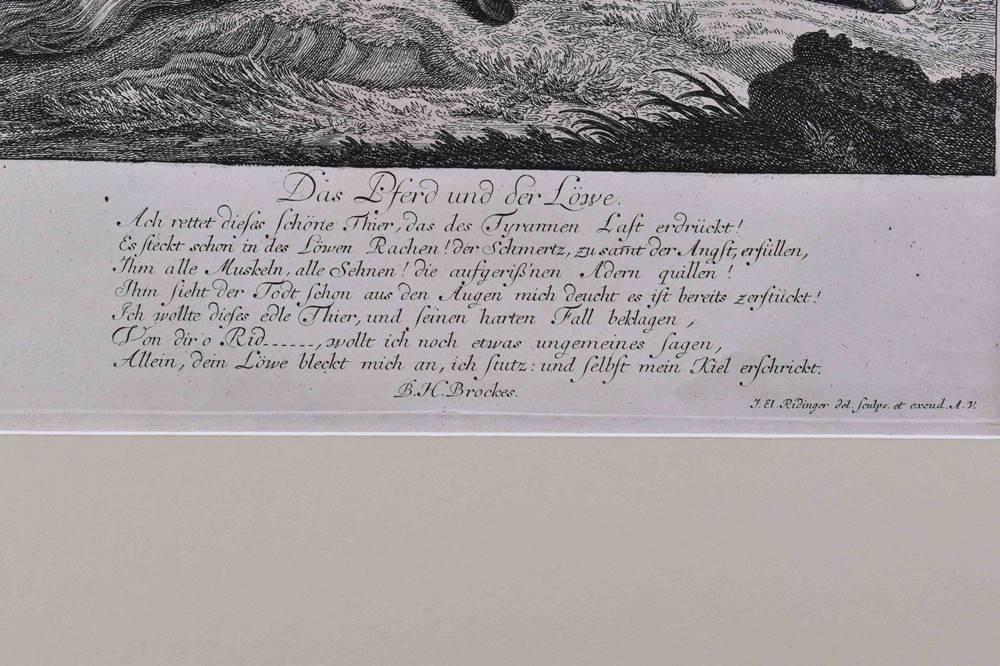 Das Pferd und der Löwe.
Ach rettet dieses schöne Thier, das des Tyrannen Last erdrückt!
Es steckt schon in des Löwen Rachen! der Schmertz, zu samt der Angst, erfüllen,
Ihm alle Muskeln, alle Sehnen! die aufgeriß'nen Adern quillen!
Ihm sieht der Todt schon aus den Augen mich deucht es ist bereits zerstückt!
Ich wollte dieses edle Thier, und seinen harten Fall beklagen,
Von dir o Rid------, wollt ich noch etwas ungemeines sagen,
Allein, dein Löwe bleckt mich an, ich stutz: und selbst mein Kiel erschrickt.
B. H. Brockes.
J. El. Ridinger del. sculps. et excud. A. V.